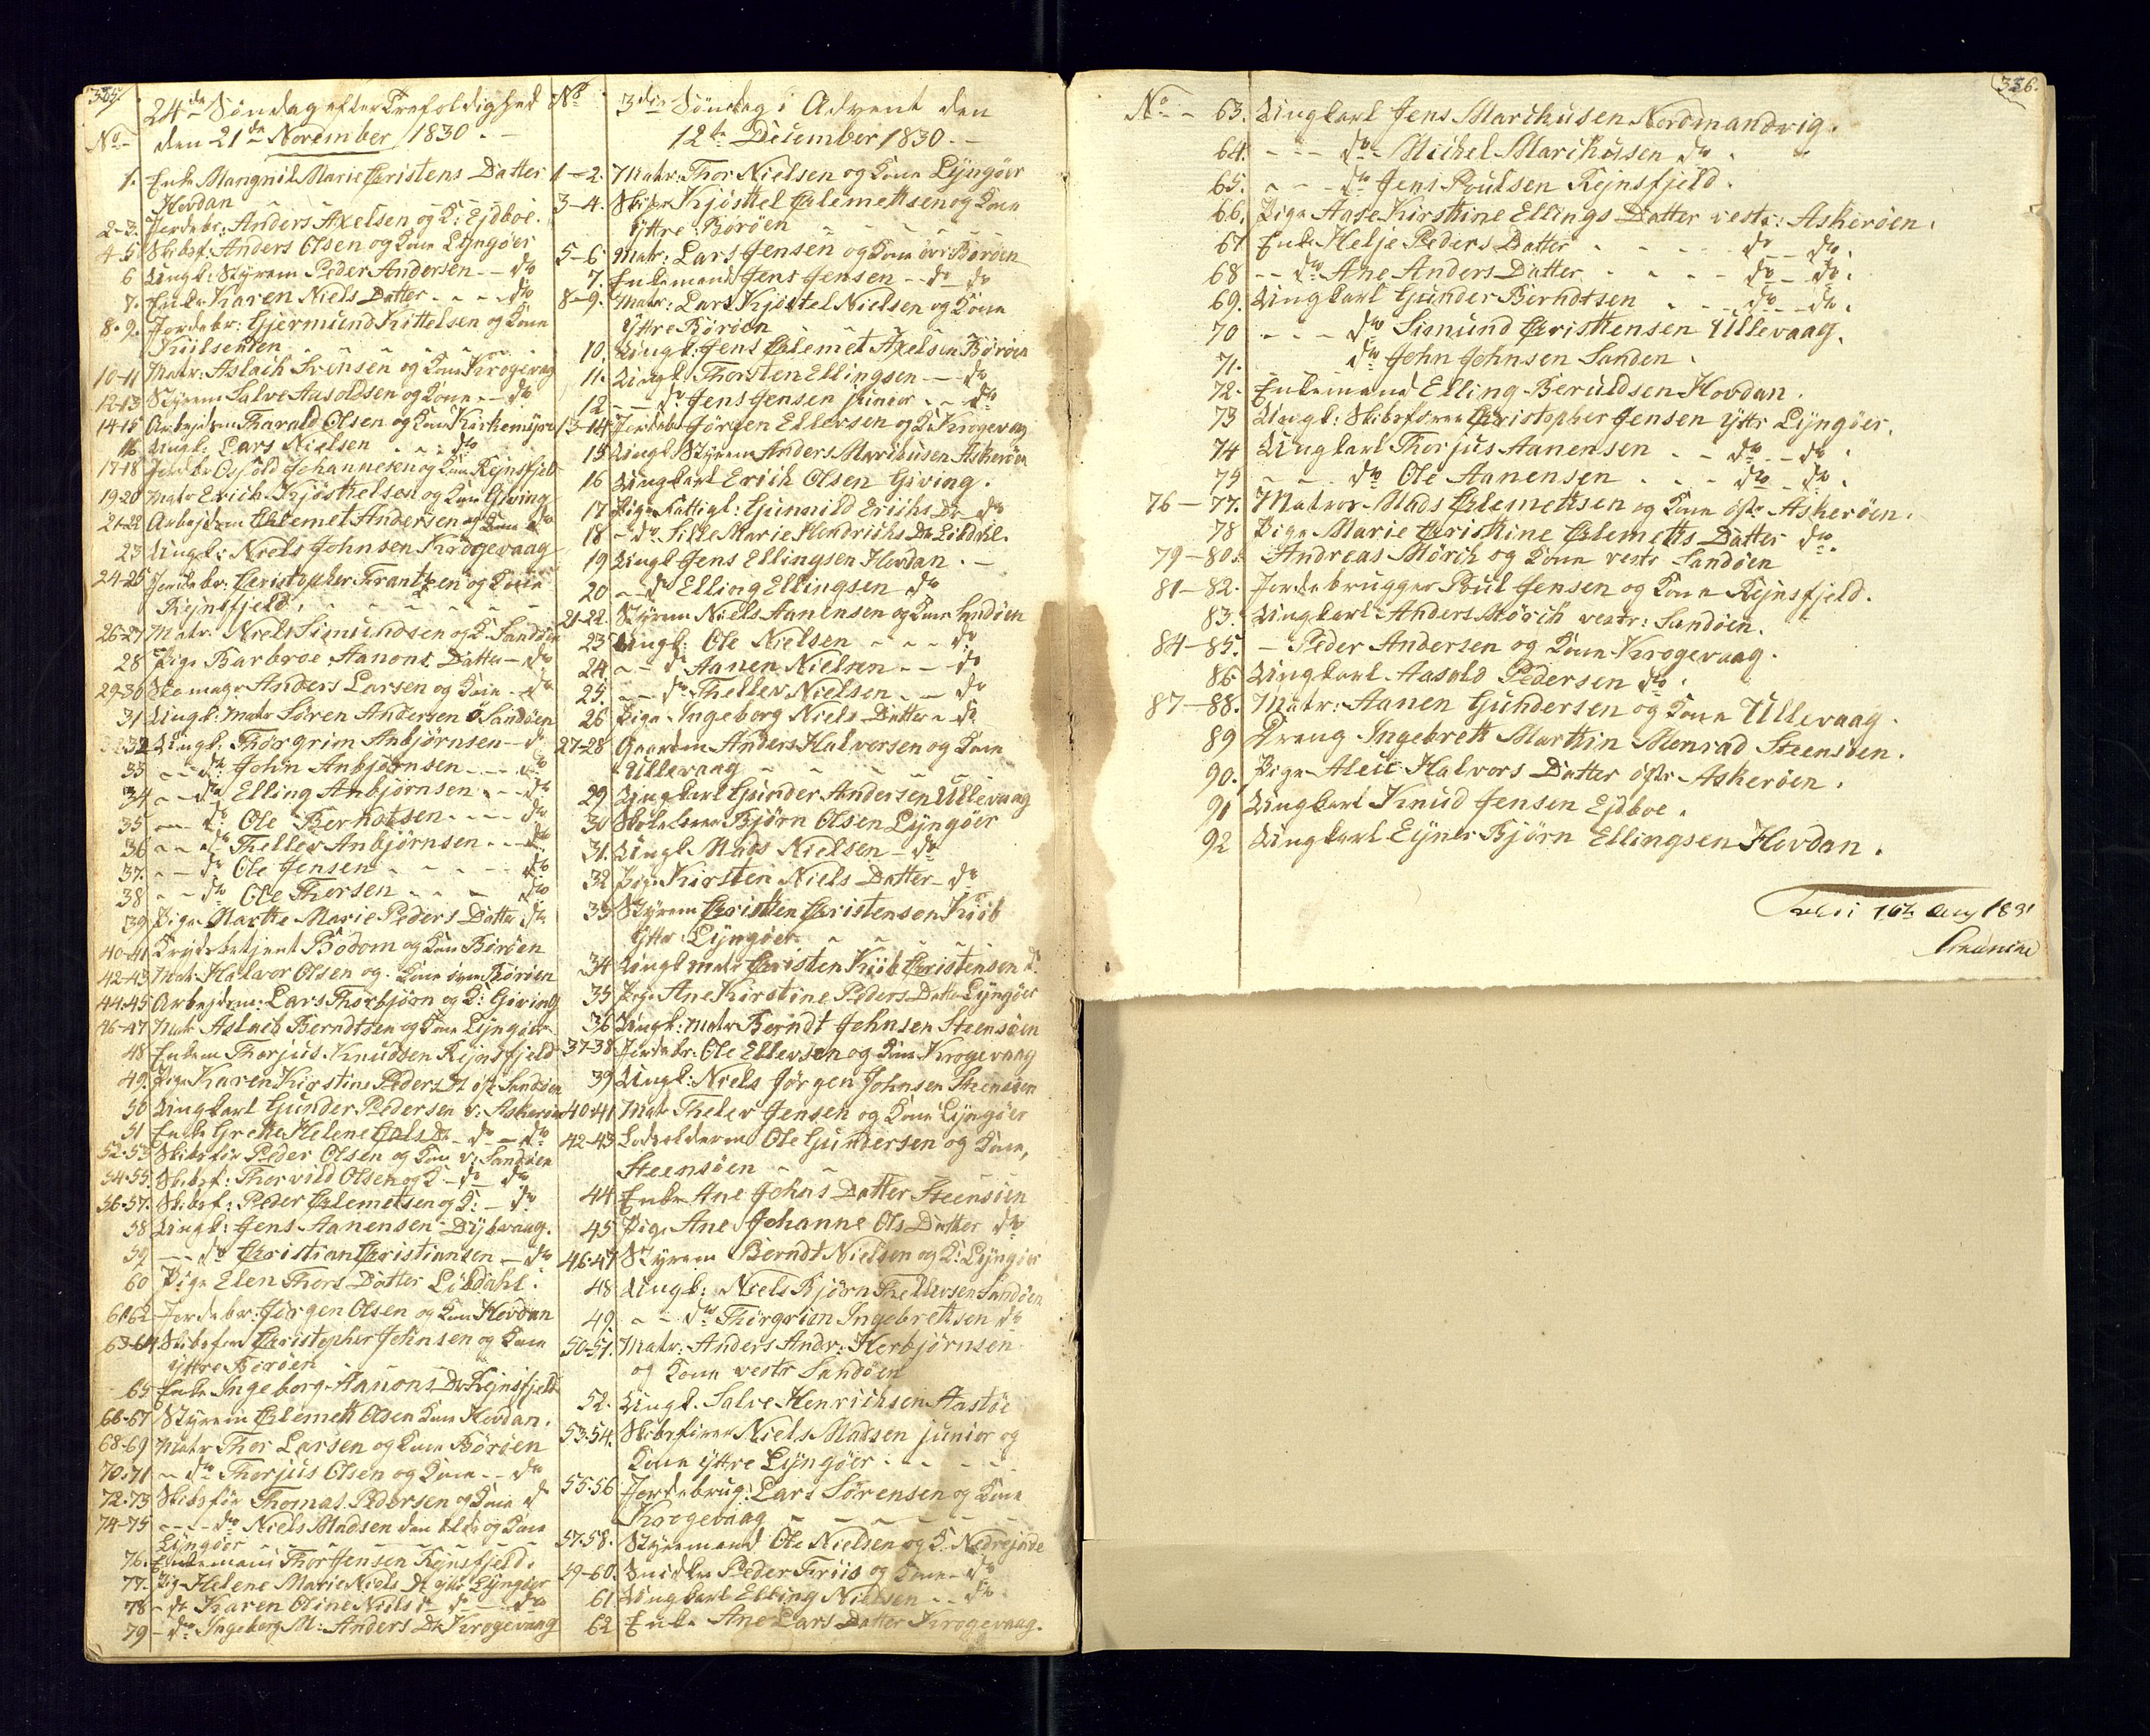 335.
24de Søndag efter Trefoldighed
No den 21de November 1830. -
1. Enke Mangnil Marie Christens Datter
Hovdan
2-3. Jordebr: Anders Axelsen og K: Ejdboe.
4-5 Skibsf: Anders Olsen og Kone Lyngöer
6 Ungk: Styrm Peder Andersen - - do
7. Enke Karen Niels Datter - - - do
8-9. Jordebr: Gjermund Kittelsen og Kone
10-11 Matr: Aslach Svensen og Kone Krogevag
12-13 Styrm Salve Aasoldsen og Kone - - do
14-15 Arbejdsm Tharald Olsen og Kone Kirkemyre
16 Ungk: Lars Nielsen - - do
17-18 Jordebr Johannesen og Kone Rejnsfjeld
19-20 Matr Erich Kjösttelsen og Kone Giving
21-22 Arbejdsm Chlemet Andersen og Kone do
23 Ungk: Niels Johnsen Krogevaag
24-25 Jordebr: Christopher Frantzen og Kone
Rejnsfjeld.
26-27 Matr: Niels Simundsen og K Sandöen
28 Pige Barbroe Aanons Datter - do
29-30 Skomagr Anders Larsen og Kone - do
31 Ungk: Matr Sören Andersen ö Sandöen
32 Ungk: Thorgrim Anbjörnsen - do
33 - - do John Anbjörnsen - - - do
34 - - do Elling Anbjörnsen - - do
35 - - do Ole Berhdtsen - - - - do
36 - - do Thellev Anbjörnsen - - do
37. - - do Ole Jensen - - - - - do
38 - - do Ole Thorsen - - - - do
39 Pige Marthe Marie Peders Datter do
40-41 Krydsbetjent Bodom og Kone Böröen
42-43 Matr Halvor Olsen og Kone Böröen
44-45 Arbejdsm: Lars Thorbjörn og K: Giving
46-47 Matr Aslach Berndtsen og Kone Lyngöer
48 Enkem Thorjus Knudsen Rejnsfjeld
49. Pige Karen Kirstine Peders Dt östr Sandöen
50 Ungkarl Gunder Pedersen v: Askeröen
51 Enke Grethe Helene Gals Dt - do - do
52-53 Skibsför Peder Olsen og Kone v: Sandöen
54-55 Skibsf: Thorvild Olsen og K - do - do
56-57. Skibsf: Peder Chlemetsen og K: - do
58 Ungk: Jens Aanensen Dybvaag.
59 - - do Christian Christiansen - do
60 Pige Elen Thors Datter Libdahl.
61-62 Jordebr: Jörgen Olsen og Kone Hovdan
63-64 Skibsfør Christopher Johnsen og Kone
Yttre Böröen
65 Enke Ingeborg Aanons Dt Rejnsfjeld
66-67 Styrm Chlemett Olsen Kone Hovdan.
68-69 Matr Thor Larsen og Kone Böröen
70-71 - do Thorjus Olsen og Kone - - do
72-73 Skibsför Thomas Pedersen og Kone do
74-75 - - - do Niels Madsen den eldr og Kone
Lyngöer
76. Enkemand Thor Jensen Rejnsfjeld.
77. Pige Helene Marie Niels Dt yttr Lyngöer
78 - do Karen Oline Niels Dt do - - do
79 - do Ingeborg M: Anders Dt Krogevaag
No 3die Söndag i Advent den
12te December 1830. -
1-2. Matr: Thor Nielsen og Kone Lyngöer
3-4. Skibsr Kjösttel Chlemettsen og Kone
Yttre Börøen
5-6. Matr: Lars Jensen og Kone övr: Börøen
7. Enkemand Jens Jensen - do do
8-9. Matr: Lars Kjösttel Nielsen og Kone
Yttre Börøen
10. Ungk: Jens Chlemet Axelsen Börøen
11. Ungk: Thorsten Ellingsen - - do
12 - - do Jens Jensen junior - - do
13-14 Jordebr Jörgen Ellevsen og K: Krogevag
15 Ungk Styrm Anders Marcusen Askeröen
16 Ungkarl Erich Olsen Giving.
17 Pige Fattigl: Gunnild Erichs Dr do
18 - do Silke Marie Hendrichs Dr Libdahl.
19 Ungk Jens Ellingsen Hovdan. -
20 - - do Elling Ellingsen do
21-22. Styrm Niels Aanensen og Kone Sandöen
23 Ungk: Ole Nielsen - - - do
24. - - do Aanen Nielsen - - - do
25. - - do Thellev Nielsen - - do
26 Pige Ingeborg Niels Datter - do
27-28 Gaardm Anders Halvorsen og Kone
Ullevaag
29 Ungkarl Gunder Andersen Ullevaag
30 Skolelærer Björn Olsen Lyngöer
31. Ungk Mads Nielsen - do
32 Pige Kirsten Niels Datter - do
33 Styrm Christen Christensen Kiib
Yttre: Lyngöer
34 Ungk matr Christen Kiib Christensen do
35 Pige Ane Kirstine Peders Datter Lyngöer
36 Ungk: matr Berndt Johnsen Steensöen
37-38 Jordebr: Ole Ellevsen og Kone Krogevaag
39 Ungk: Niels Jörgen Johnsen Steensöen
40-41 Matr Thelev Jensen og Kone Lyngöer
42-43 Ole Gundersen og Kone,
Steensöen
44 Enke Ane Johns Datter Steensöen
45 Pige Ane Johanne Ols Datter do
46-47 Styrm Berndt Nielsen og K: Lyngöer
48 Ungk: Niels Björn Thellevsen Sandöen
49 - - do Thorgrim Ingebrethsen do
50-51. Matr: Anders Andr: Herbjörnsen
og Kone vestr Sandöen
52. Ungk. Salve Henrichsen Aastöe
53-54. Skibsförer Niels Madsen junior og
Kone Yttre Lyngöer
55-56 Jordebrug: Lars Sörensen og Kone
Krogevaag
57-58. Styrmand Ole Nielsen og K. Nedrejorde
59-60. Snidker Peder Friis og Kone - do
61 Ungkarl Elling Nielsen - - do
62 Enke Ane Lars Datter Krogevaag.
336.
No - 63. Ungkarl Jens Marchusen Nordmandvig.
64. - - - do - Michel Marchusen do
65. - - - do Jens Poulsen Rejnsfjeld.
66. Pige Aase Kirstine Ellings Datter vestr: Askeröen.
67 Enke Helje Peders Datter - - - do - do.
68 - - do Ane Anders Datter - - - - do - do.
69. Ungkarl Gunder Berndtsen - - do - do.
70 - - - do Simund Christensen Ullevaag.
71. do John Johnsen Sanden.
72. Enkemand Elling Beruldsen Hovdan.
73 Ungk: Skibsförer Christopher Jensen Yttr Lyngöer.
74 Ungkarl Thorjus Aanensen - - do - - do.
75 - - - do Ole Aanensen - - - do - do.
76-77. Matros Mads Chlemettsen og Kone östr Askeröen.
78 Pige Marie Christine Chlemetts Datter do.
79-80. Andreas Mörch og Kone vestr Sandöen
81-82. Jordebrugger Poul Jensen og Kone Rejnsfjeld.
83. Ungkarl Anders Mörch vestr: Sandöen.
84-85. - Peder Andersen og Kone Krogevaag.
86 Ungkarl Aasold Pedersen do.
87-88. Matr: Aanen Gundersen og Kone Ullevaag.
89 Dreng Ingebrett Marthin Monrad Steensöen.
90. Pige Aleu Halvors Datter östr Askeröen.
91 Ungkarl Knud Jensen Ejdboe.
92 Ungkarl Ejner Björn Ellingsen Hovdan.